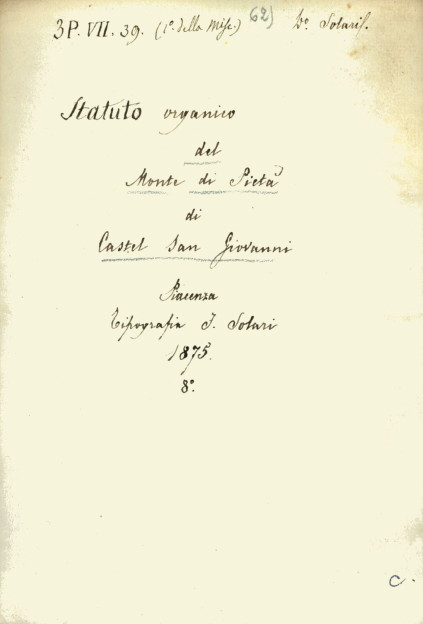 3P. VII. 39. (1º. della Misc.) 62)
Statuto organico
del
Monte di Pietà
di
Castel San Giovanni
Piacenza
Tipografia F. Solari
1875.
8º.
C.